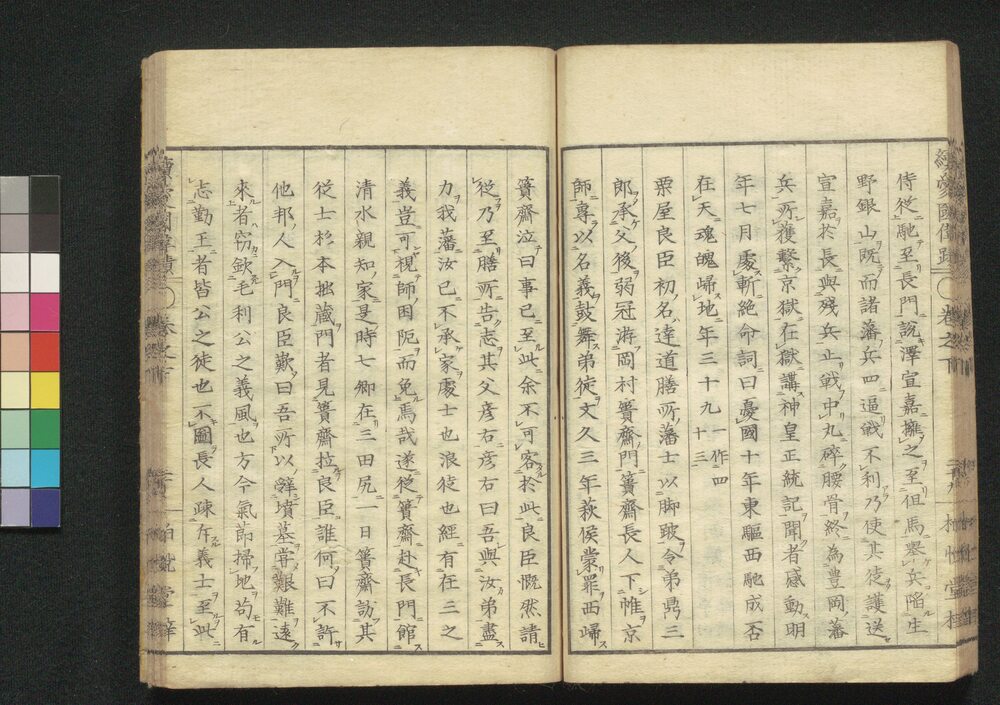 侍從馳至長門說澤宣嘉擁之至但馬擧兵陷生
野銀山既而諸藩兵四逼戰不利乃使其徒護送
宣嘉於長與殘兵止戰中丸碎腰骨終為豊岡藩
兵所獲繫京獄在獄講神皇正統記聞者感動明
年七月處斬絕命詞曰憂國十年東驅西馳成否
在天魂魄歸地年三十九一作四十三
粟屋良臣初名達道膳所藩士以脚跛令弟鼎三
郎承父後弱冠游岡村簣齋門簣齋長人下帷京
師專以名義鼓舞弟徒文久三年萩侯蒙罪西歸
簣齋泣曰事已至此余不可客於此良臣慨然請
從乃至膳所告志其父彦右彦右曰吾與汝弟盡
力我藩汝已不承家處士也浪徒也經有在三之
義豈可視師困阨而免焉哉遂從簣齋赴長門館
清水親知家是時七卿在三田尻一日簣齋訪其
從士於本拙藏門者見簣齋拉良臣誰何曰不許
他邦人入門良臣歎曰吾所以辭墳墓甞艱難遠
來者窃欽毛利公之義風也方今氣節掃地苟有
志勤王者皆公之徒也不圖長人疎斥義士至此